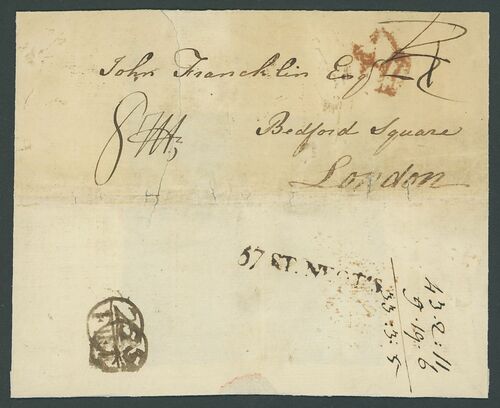 John Francklin Esqr
Bedford Square
London
57 ST. NEOT'S
43.2.11
9.19.6
33.3.5